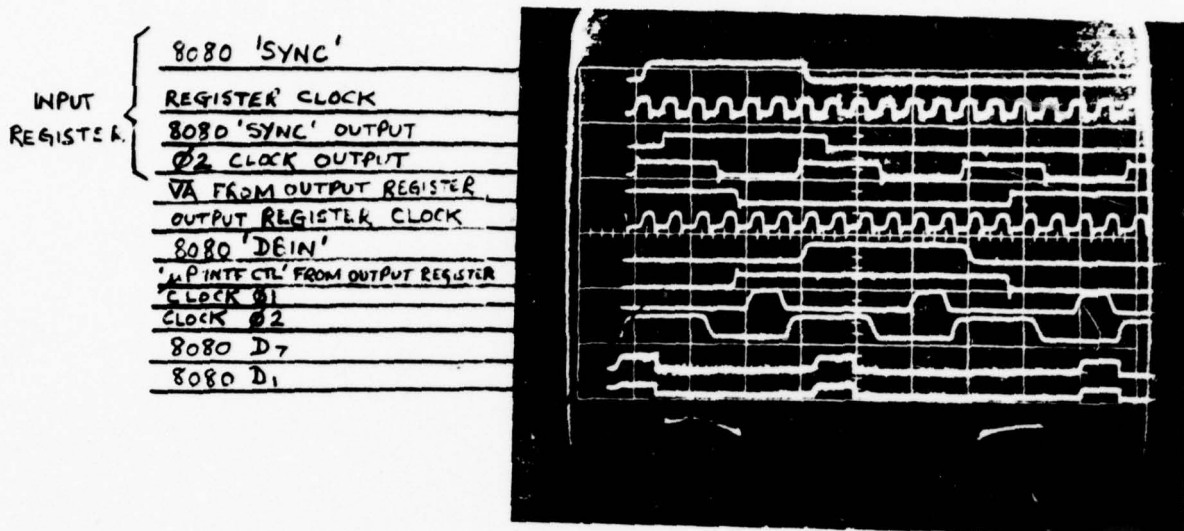 8080 'SYNC'
INPUT REGISTER
REGISTER CLOCK
8080 'SYNC' OUTPUT
Ø2 CLOCK OUTPUT
VA FROM OUTPUT REGISTER
OUTPUT REGISTER CLOCK
8080 'DBIN'
'µP INTF CTL' FROM OUTPUT REGISTER
CLOCK Ø1
CLOCK Ø2
8080 D7
8080 D1